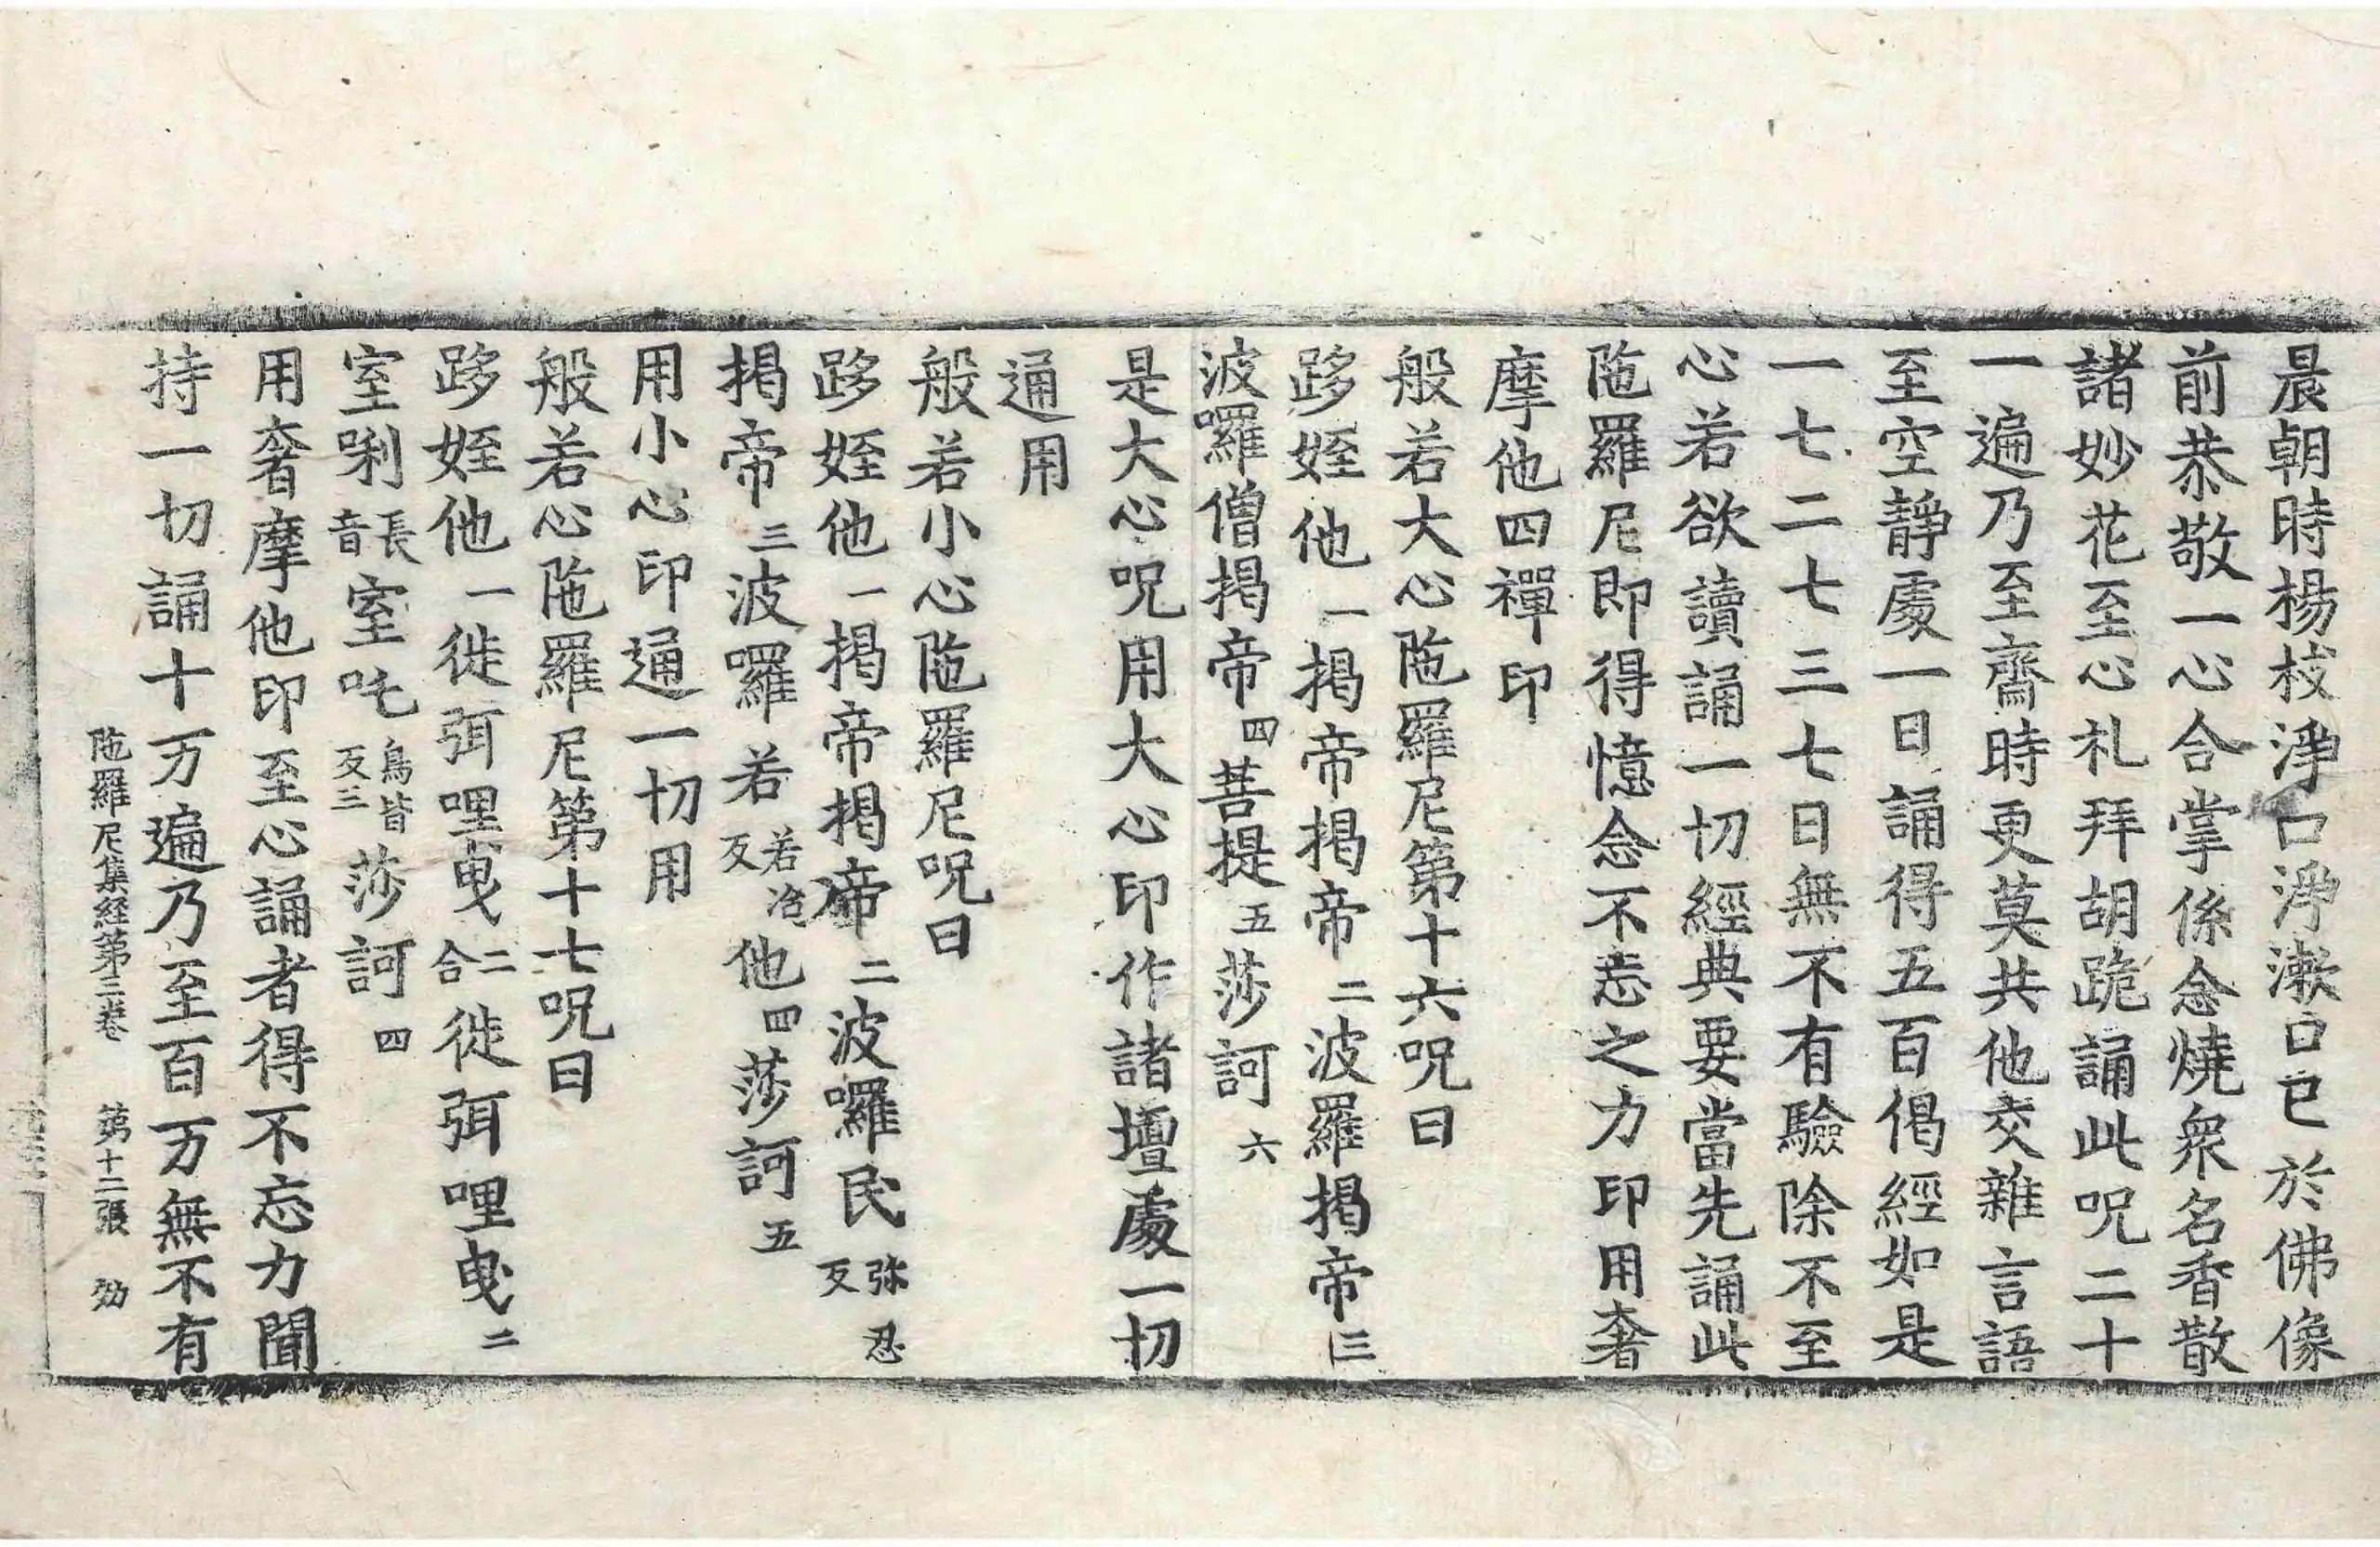 晨朝時楊枝淨口淨漱口已於佛像
前恭敬一心合掌係念燒衆名香散
諸妙花至心礼拜胡跪誦此呪二十
一遍乃至齋時更莫共他交雜言語
至空靜處一日誦得五百偈經如是
一七二七三七日無不有驗除不至
心若欲讀誦一切經典要當先誦此
陁羅尼即得憶念不忘之力印用奢
摩他四禪印
般若大心陁羅尼第十六呪曰
跢姪他一揭帝揭帝二波羅揭帝三
波囉僧揭帝四菩提五莎訶六
是大心呪用大心印作諸壇處一切
通用
般若小心陁羅尼呪曰
跢姪他一揭帝揭帝二波囉民弥忍反
揭帝三波囉若若冶反他四莎訶五
用小心印通一切用
般若心陁羅尼第十七呪曰
跢姪他一徙弭哩曳二合徙弭哩曳二
室唎長音室吒鳥皆反三莎訶四
用奢摩他印至心誦者得不忘力聞
持一切誦十万遍乃至百万無不有
陁羅尼集経第三卷 第十二張 効